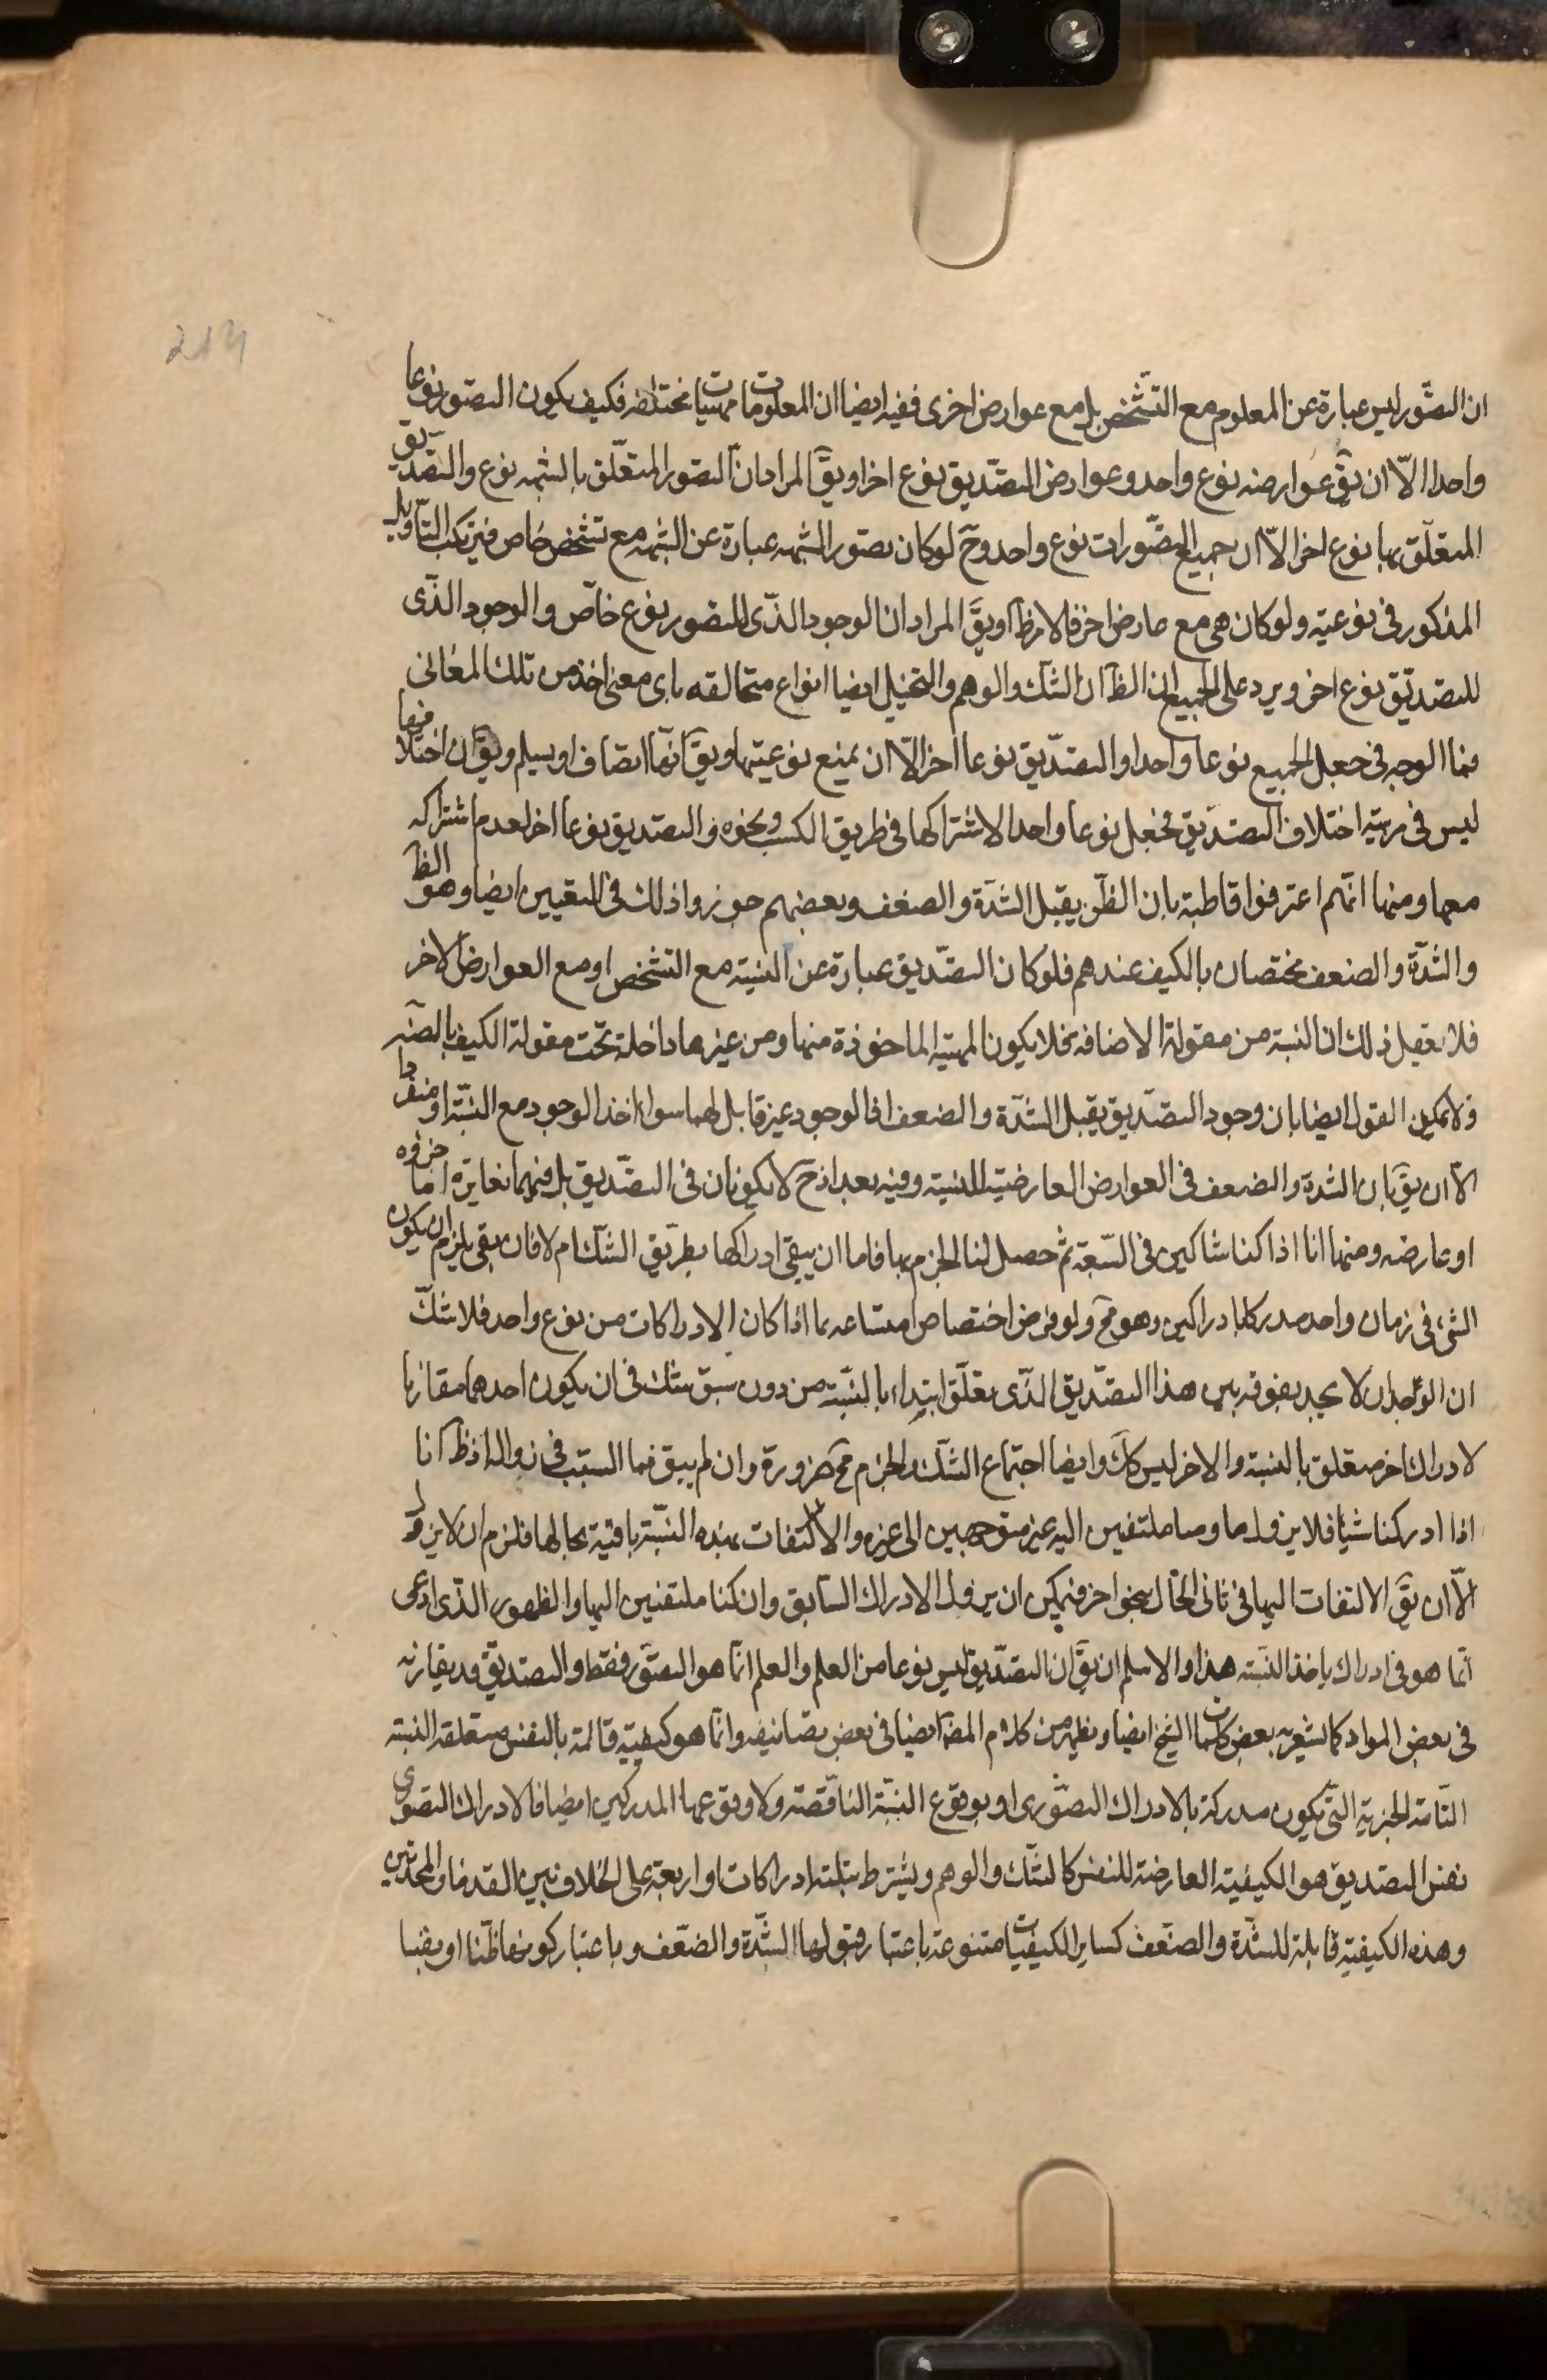 ان التصور ليس عبارة عن المعلوم مع التشخص بل مع عوارض اخرى ففيه ايضا ان المعلومات مهيات مختلفه فكيف يكون التصور نوعا
واحدا الا ان يق عوارضه نوع واحد وعوارض التصديق نوع اخر او يق المراد ان التصور المتعلق بالنسبه نوع والتصديق
المتعلق بها نوع اخر الا ان جميع التصورات نوع واحد وح لو كان تصور النسبه عبارة عن النسبه مع تشخص خاص فيرتكب التاويل
المذكور في نوعيته ولو كان هي مع عارض اخر فالامر ظ او يق المراد ان الوجود الذي للتصور نوع خاص والوجود الذي
للتصديق نوع اخر ويرد على الجميع ان الظ ان الشك والوهم والتخييل ايضا انواع متخالفه باى معنى اخذ من تلك المعانى
فما الوجه في جعل الجميع نوعا واحدا والتصديق نوعا اخر الا ان يمنع نوعيتها ويق انها اصناف او يسلم ويق ان اختلافها
ليس في مرتبة اختلاف التصديق فجعل نوعا واحدا لاشتراكها في طريق الكسب ونحوه والتصديق نوعا اخر لعدم اشتراكه
معها ومنها انهم اعترفوا قاطبة بان الظن يقبل الشدة والضعف وبعضهم جوزوا ذلك في اليقين ايضا وهو الظ
والشدة والضعف مختصان بالكيف عندهم فلو كان التصديق عبارة عن النسبة مع التشخص او مع العوارض الاخر
فلا يعقل ذلك اذ النسبة من مقولة الاضافه فلا يكون المهية الماخوذة منها ومن غيرها داخلة تحت مقولة الكيف بالضر
ولا يمكن القول ايضا بان وجود التصديق يقبل الشدة والضعف اذ الوجود غير قابل لهما سواء اخذ الوجود مع النسبة او منفردا
الا ان يق بان الشدة والضعف في العوارض العارضية للنسبة وفيه بعد اذ ح لا يكونان في التصديق بل فيهما يغايره اما جزؤه
او عارضه ومنها انا اذا كنا شاكين في النسبة ثم حصل لنا الجزم بها فاما ان يبقى ادراكها بطريق الشك ام لا فان بقى يلزم ان يكون
الشئ في زمان واحد مدركا بادراكين وهو مح ولو فرض اختصاص امتناعه بما اذا كان الادراكات من نوع واحد فلا شك
ان الوجدان لا يجد تفرقه بين هذا التصديق الذي تعلق ابتداء بالنسبة من دون سبق شك في ان يكون احدهما مقارنا
لادراك اخر متعلق بالنسبة والاخر ليس كك وايضا اجتماع الشك والجزم مح ضرورة وان لم يبق فما السبب في زواله اذ ظ انا
اذا ادركنا شيئا فلا يزول ما دمنا ملتفتين اليه غير متوجهين الى غيره والالتفات بهذه النسبة باقية بحالها فلزم ان لا يزول
الا ان يق الالتفات اليها في ثانى الحال بنحو اخر فيمكن ان يزول الادراك السابق وان كنا ملتفتين اليها والظهور الذي ادعى
انما هو في ادراك ياخذ النسبه هذا والاسلم ان يق ان التصديق ليس نوعا من العلم والعلم انما هو التصور فقط والتصديق قد يقارنه
في بعض المواد كما يشعر به بعض كلمات الشيخ ايضا ويظهر من كلام المض ايضا في بعض تصانيفه وانما هو كيفية قائمة بالنفس متعلقة النسبة
التامة الخبرية التي يكون مدركة بالادراك التصورى او بوقوع النسبة الناقصة ولا وقوعها المدركين ايضا فالادراك التصورى
نفس التصديق هو الكيفية العارضة للنفس كالشك والوهم ويشترط بثلثة ادراكات او اربعة على الخلاف بين القدماء والمحدثين
وهذه الكيفية قابلة للشدة والضعف كساير الكيفيات متنوعة باعتبار قبولها الشدة والضعف وباعتبار كونها ظنا او يقينا